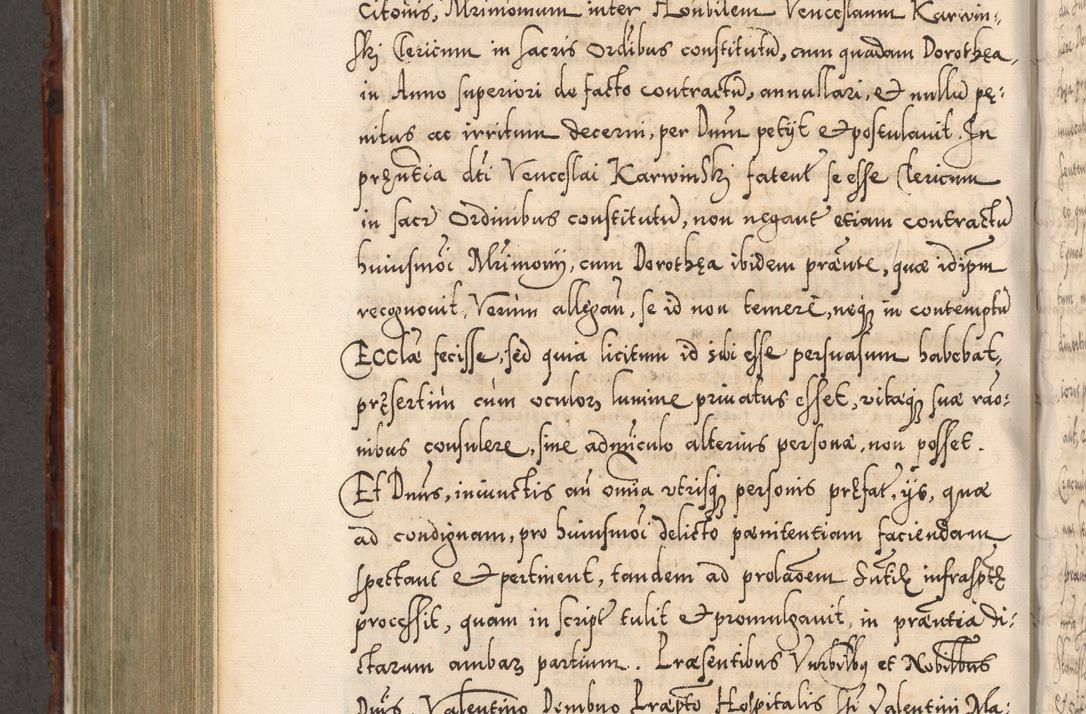 Citonis, Mrimonium inter Honbilem Venceslaum Karwin-
ski Clericum in sacris Ordibus constitutū, cum quadam Dorothęa,
in Anno superiori de facto contractū, annullari, et nullū pę-
nitus ac irritum decerni, per Dnm petyt et postulavit. In
pręntia dti Venceslai Karwinski fatent se esse Clericum
in sacr Ordinibus constitutū, non negant etiam contractū
huiusmōi Mrimony, cum Dorothęa ibidem præntē, quæ idipm
recognovit. Verum allegan, se id non temerē, neq in contemptū
Ecclæ fecisse, sed quia licitum id sibi esse persuasum habebat,
pręsertim cùm oculor lumine privatus esset, vitæq suæ rao-
nibus consulere, sine adminculo alterius personæ, non posset.
Et Dnus, iniunctis an omia utrisq personis pręfat, ijs, quæ
ad condignam, pro huiusmōi delicto pænitentiam faciendam
spectant et pertinent, tandem ad prolaōem Sntię infrasptę
processit, quam in script tulit et promulgavit, in præntia di-
ctarum ambar partium. Præsentibus Vnrbilbq et Nobilibus
Dnis, Valentino Dembno Præpto Hospitalis Sti Valentini Ma-